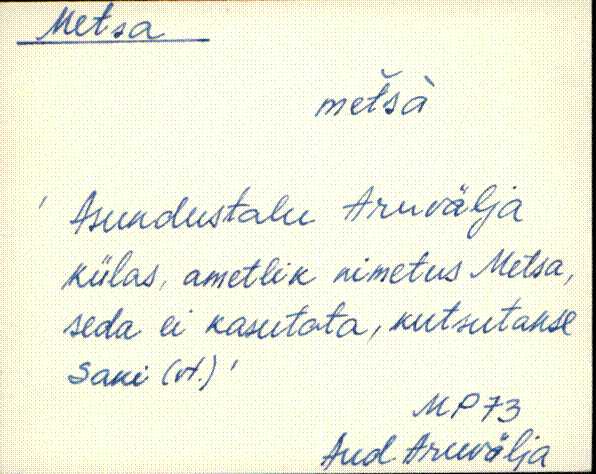 Metsa
metšà
' Asundustalu Aruvälja
külas, ametlik nimetus Metsa,
seda ei kasutata, kutsutakse
Saki (vt.) '
MP 73
Aud Aruvälja